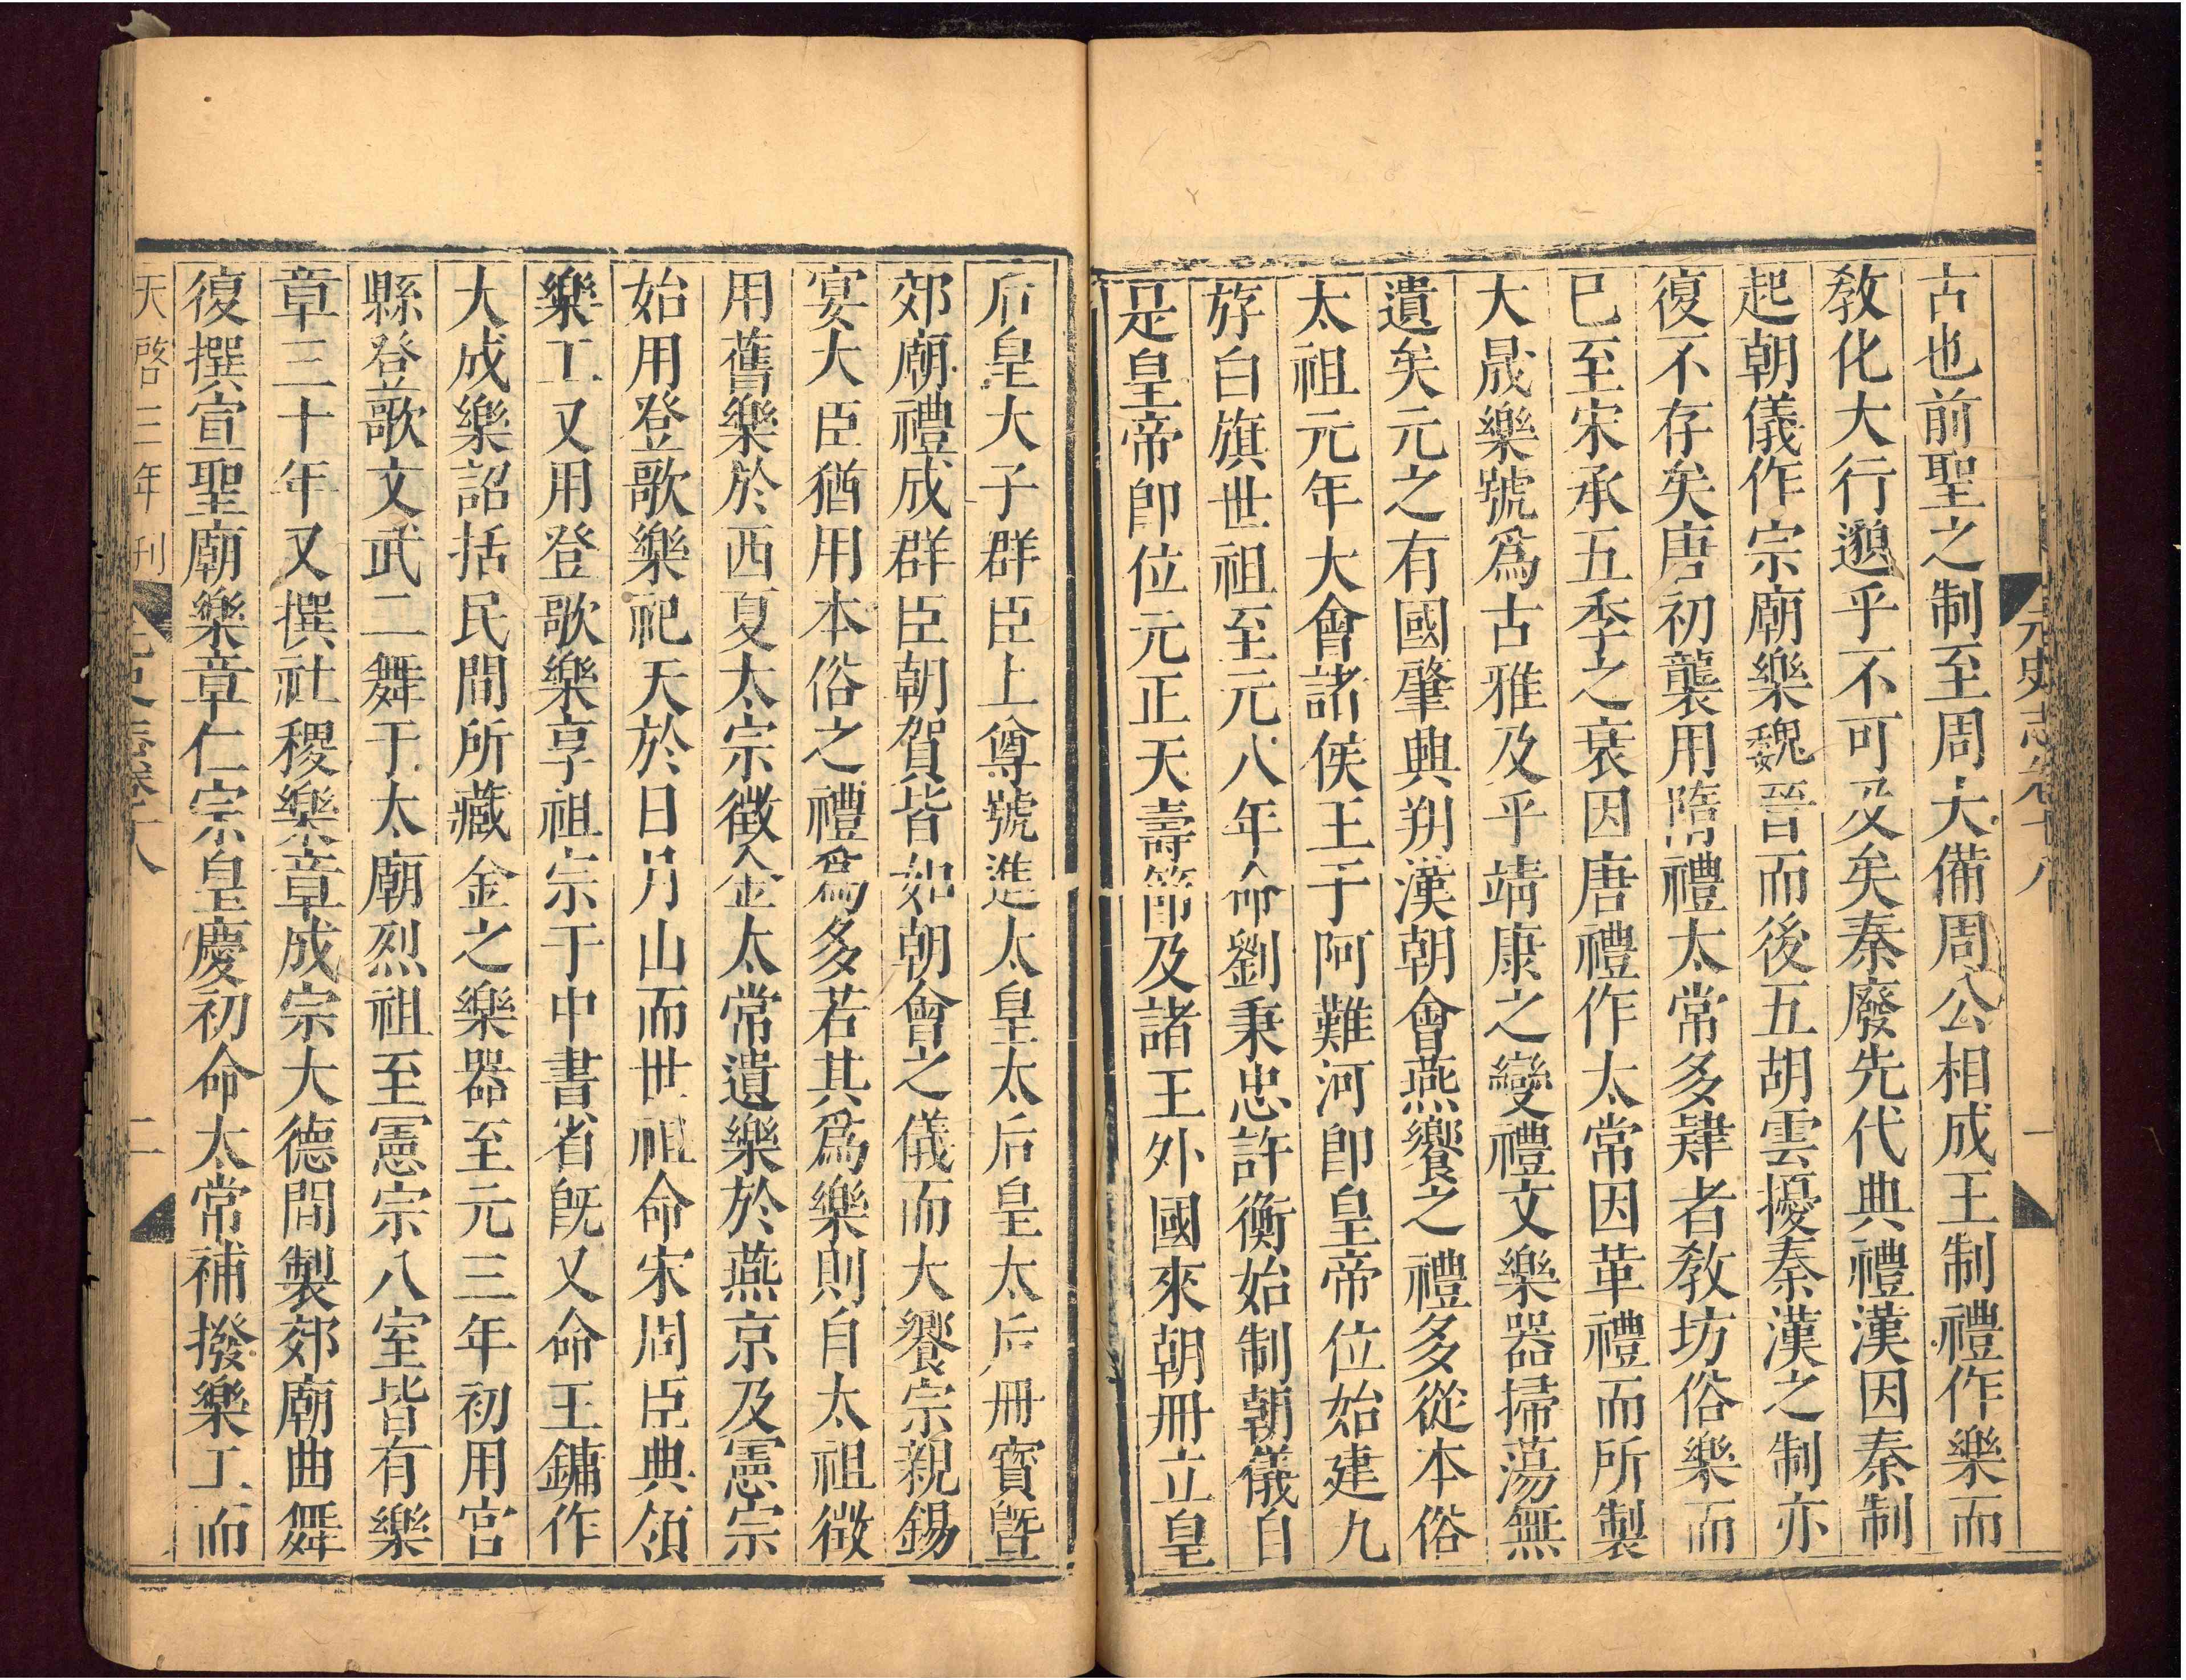 元史志卷十八
一
古也前聖之制至周大備周公相成王制禮作樂而
教化大行邈乎不可及矣秦廢先代典禮漢因秦制
起朝儀作宗廟樂魏晉而後五胡雲擾秦漢之制亦
復不存矣唐初襲用隋禮太常多肄者教坊俗樂而
已至宋承五季之衰因唐禮作太常因革禮而所製
大晟樂號爲古雅及乎靖康之變禮文樂器掃蕩無
遺矣元之有國肇興朔漠朝會燕饗之禮多從本俗
太祖元年大會諸侯王于阿難河即皇帝位始建九
斿白旗世祖至元八年命劉秉忠許衡始制朝儀自
是皇帝即位元正天壽節及諸王外國來朝冊立皇
后皇太子群臣上尊號進太皇太后皇太后冊寶曁
郊廟禮成群臣朝賀皆如朝會之儀而大饗宗親錫
宴大臣猶用本俗之禮爲多若其爲樂則自太祖徵
用舊樂於西夏太宗徵金太常遺樂於燕京及憲宗
始用登歌樂祀天於日月山而世祖命宋周臣典領
樂工又用登歌樂享祖宗于中書省旣又命王鏞作
大成樂詔括民間所藏金之樂器至元三年初用宮
縣登歌文武二舞于太廟烈祖至憲宗八室皆有樂
章三十年又撰社稷樂章成宗大德間製郊廟曲舞
復撰宣聖廟樂章仁宗皇慶初命太常補撥樂工而
天啓三年刊
元史志卷十八
二